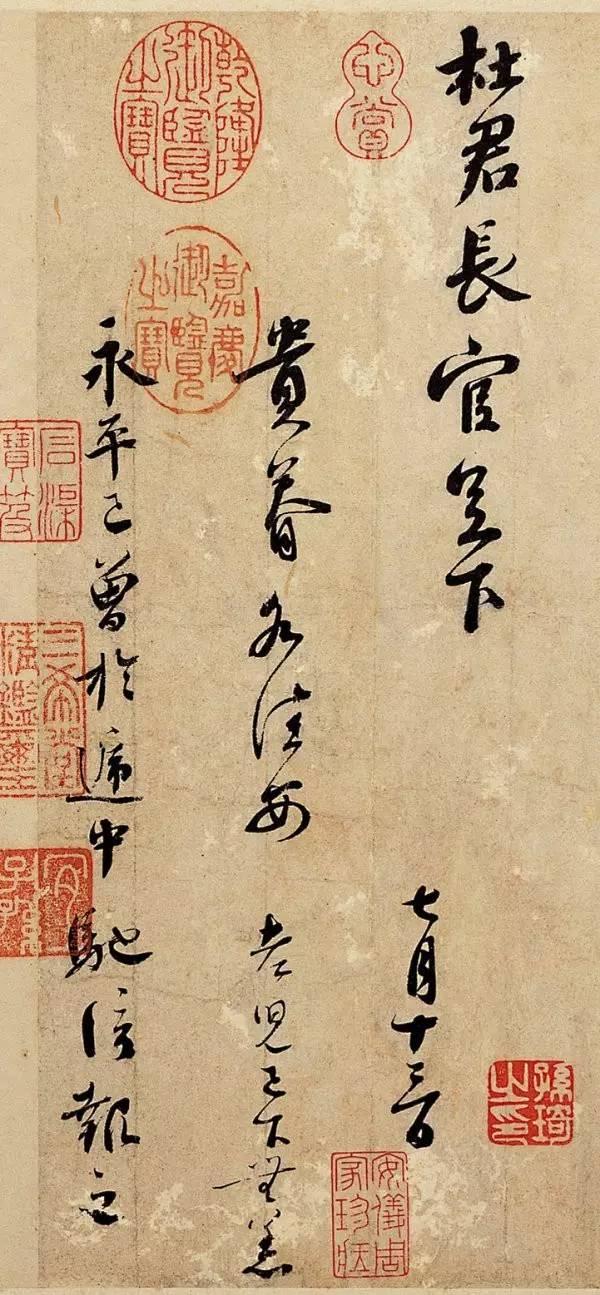 杜君長官足下
七月十三日
貴眷各佳安 老児已下無恙
永平已曾於遞中馳信報之
心賞
乾隆御覽之寶
嘉慶御覽之寶
石渠寶笈
三希堂精鑑璽
宜子孫
安儀周家珍藏